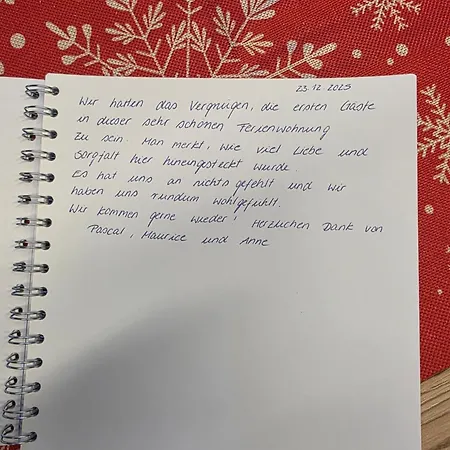 23.12.2025
Wir hatten das Vergnügen, die ersten Gäste
in dieser sehr schönen Ferienwohnung
zu sein. Man merkt, wie viel Liebe und
Sorgfalt hier hineingesteckt wurde.
Es hat uns an nichts gefehlt und wir
haben uns rundum wohlgefühlt.
Wir kommen gerne wieder! Herzlichen Dank von
Pascal, Maurice und Anne